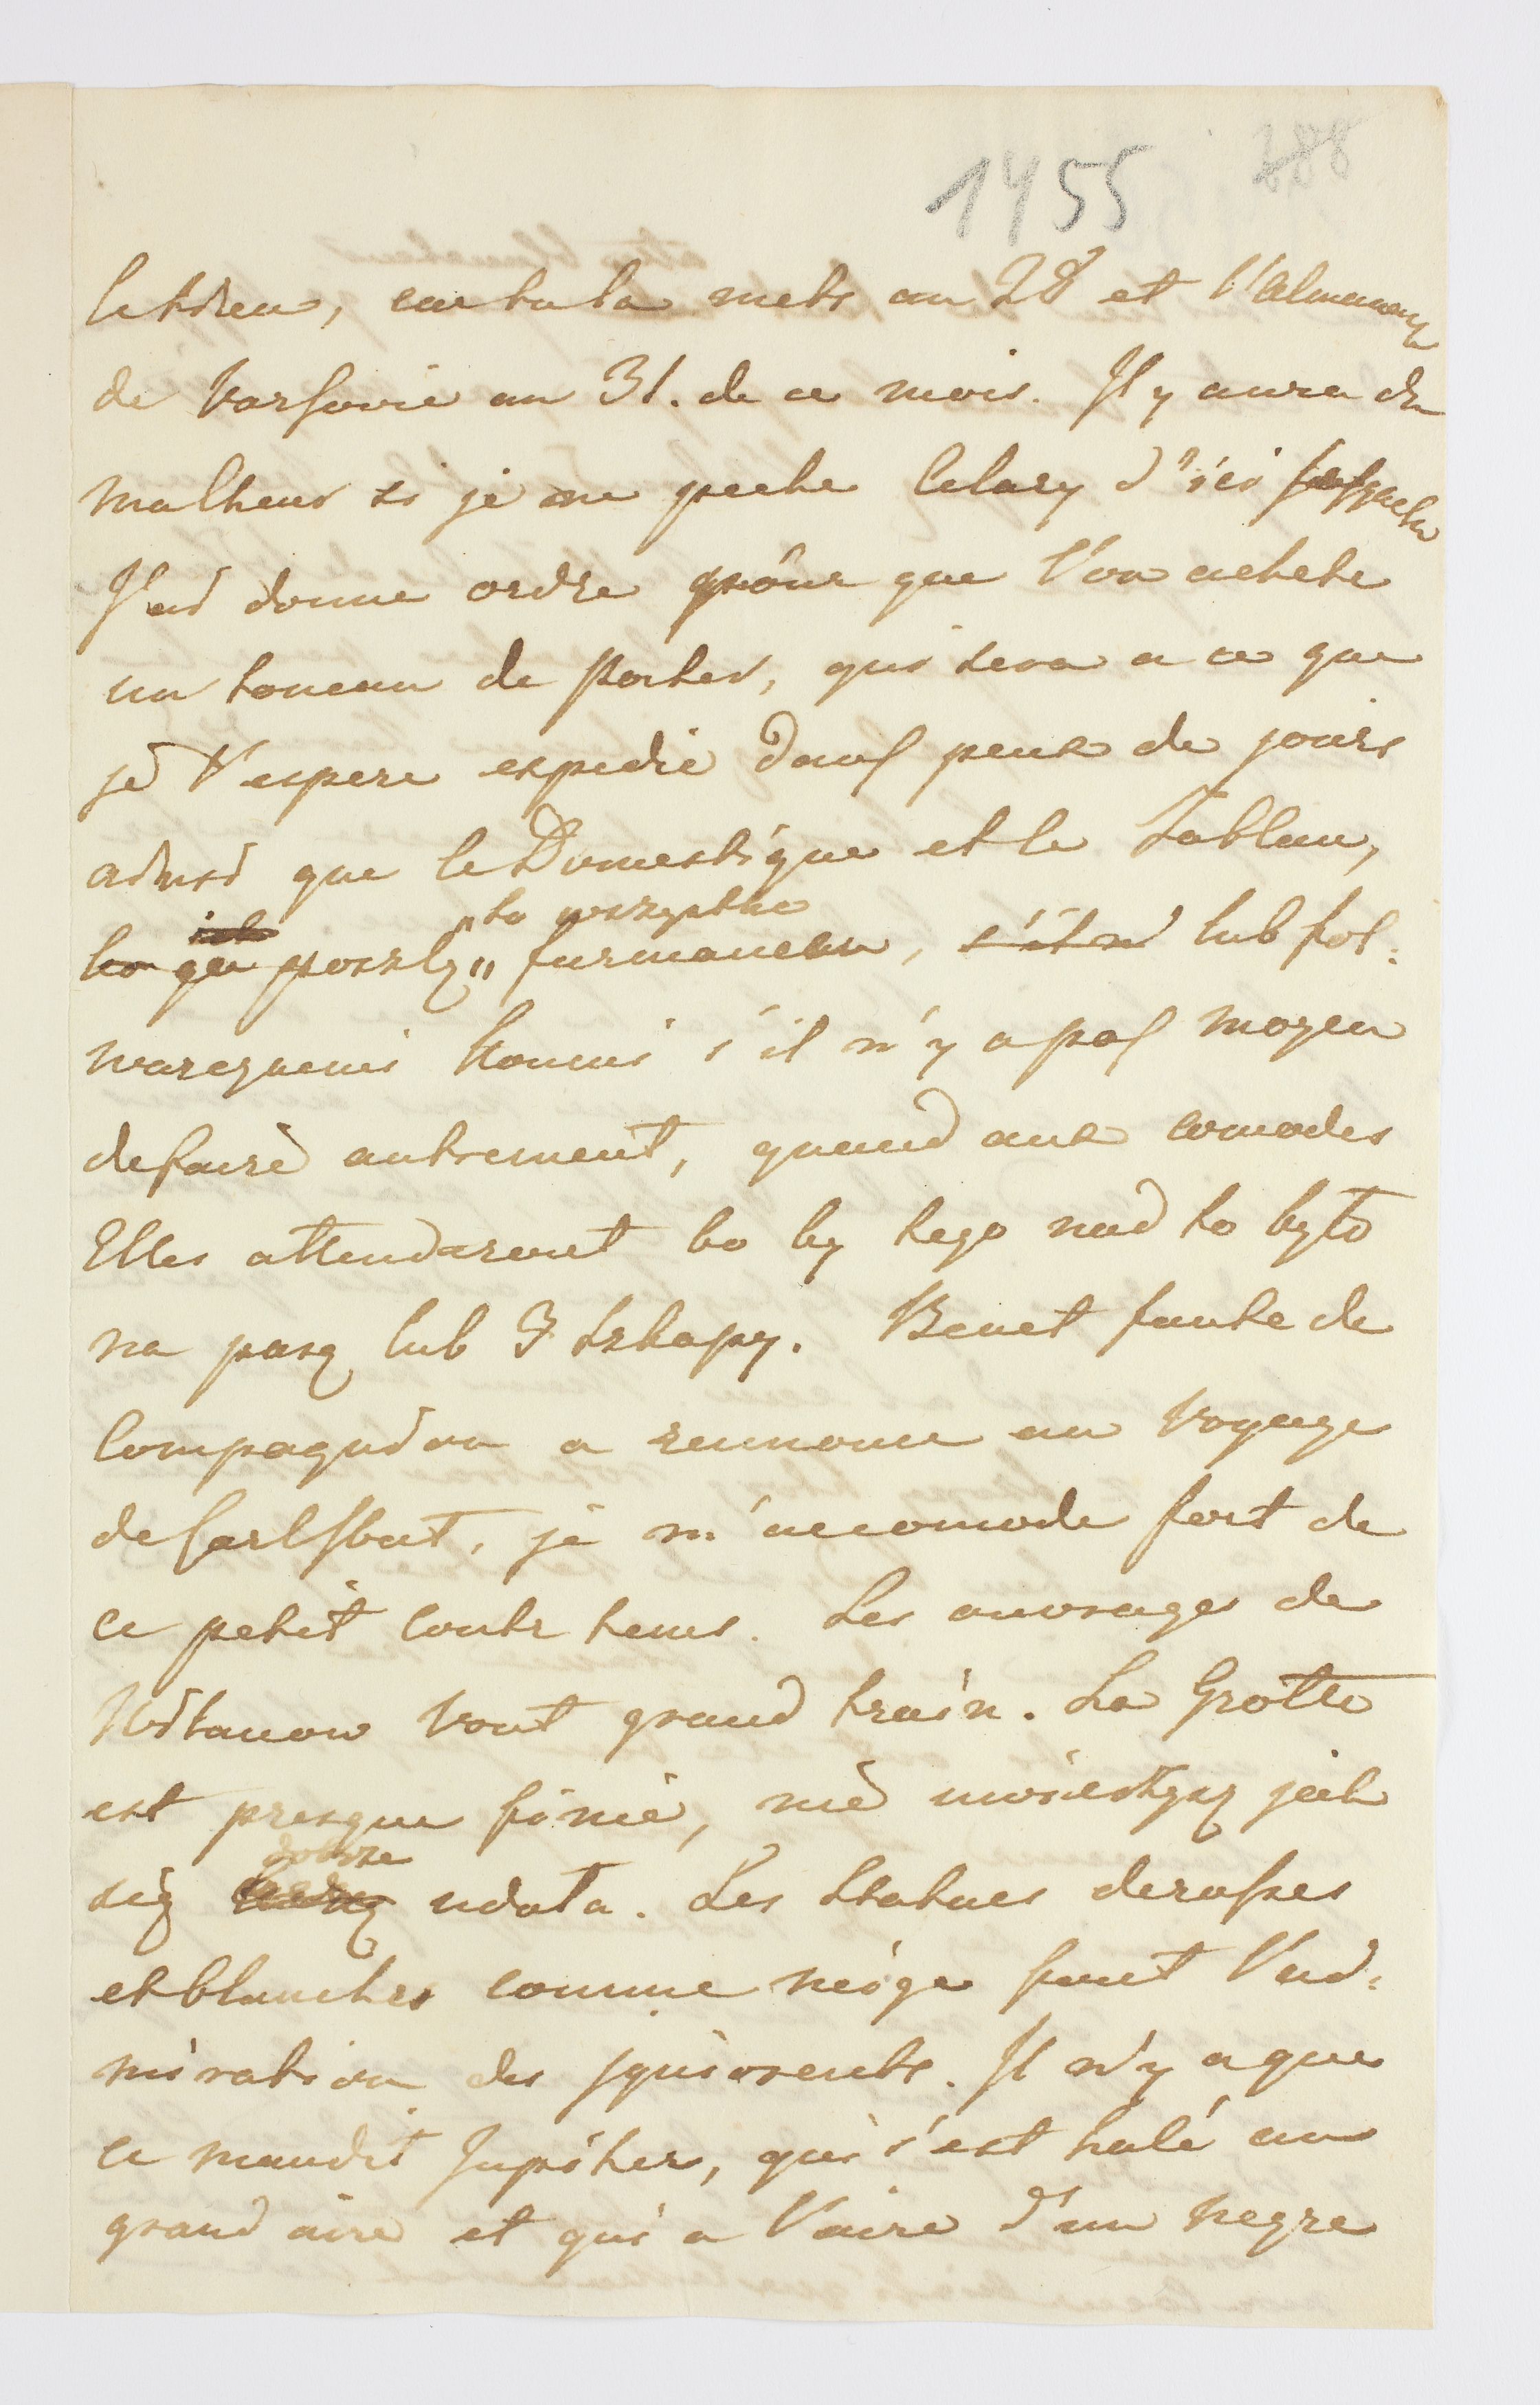 1455 788
le tien, car tu la mets au 28 et l'Almanay
de Varsovie au 31. de ce mois. Il y aura du
malheur si je ne peche d'ici
J'ai donne ordre pour que l'on achete
un toneau de Porter, qui sera a ce que
je l'espere expedie dans peux de jours
ainsi que le Domestique et le Tableau,
to wszystko
poszlę furmanem, lub fol:
warcznemi konimi s'il n'y a pas moyen
de faire autrement, quand aux comodes
Elles attenderont bo by tego nad to było
na parę lub 3 szkapy. Benet faute de
Compagnion a rennonce au Voyage
de Carlsbat, je m'accomode fort de
ce petit contr tems. Les ouvrages de
Vilanow vont grand train. La Grotte
est presque finie, nie uwierzysz jak
dobrze
się udała. Les Statues derasses
et blanches comme neige font l'ad:
miration des ignorents. Il n'y a que
ce maudit Jupiter, qui s'est halé au
grand aire et qui a l'aire d'un negre